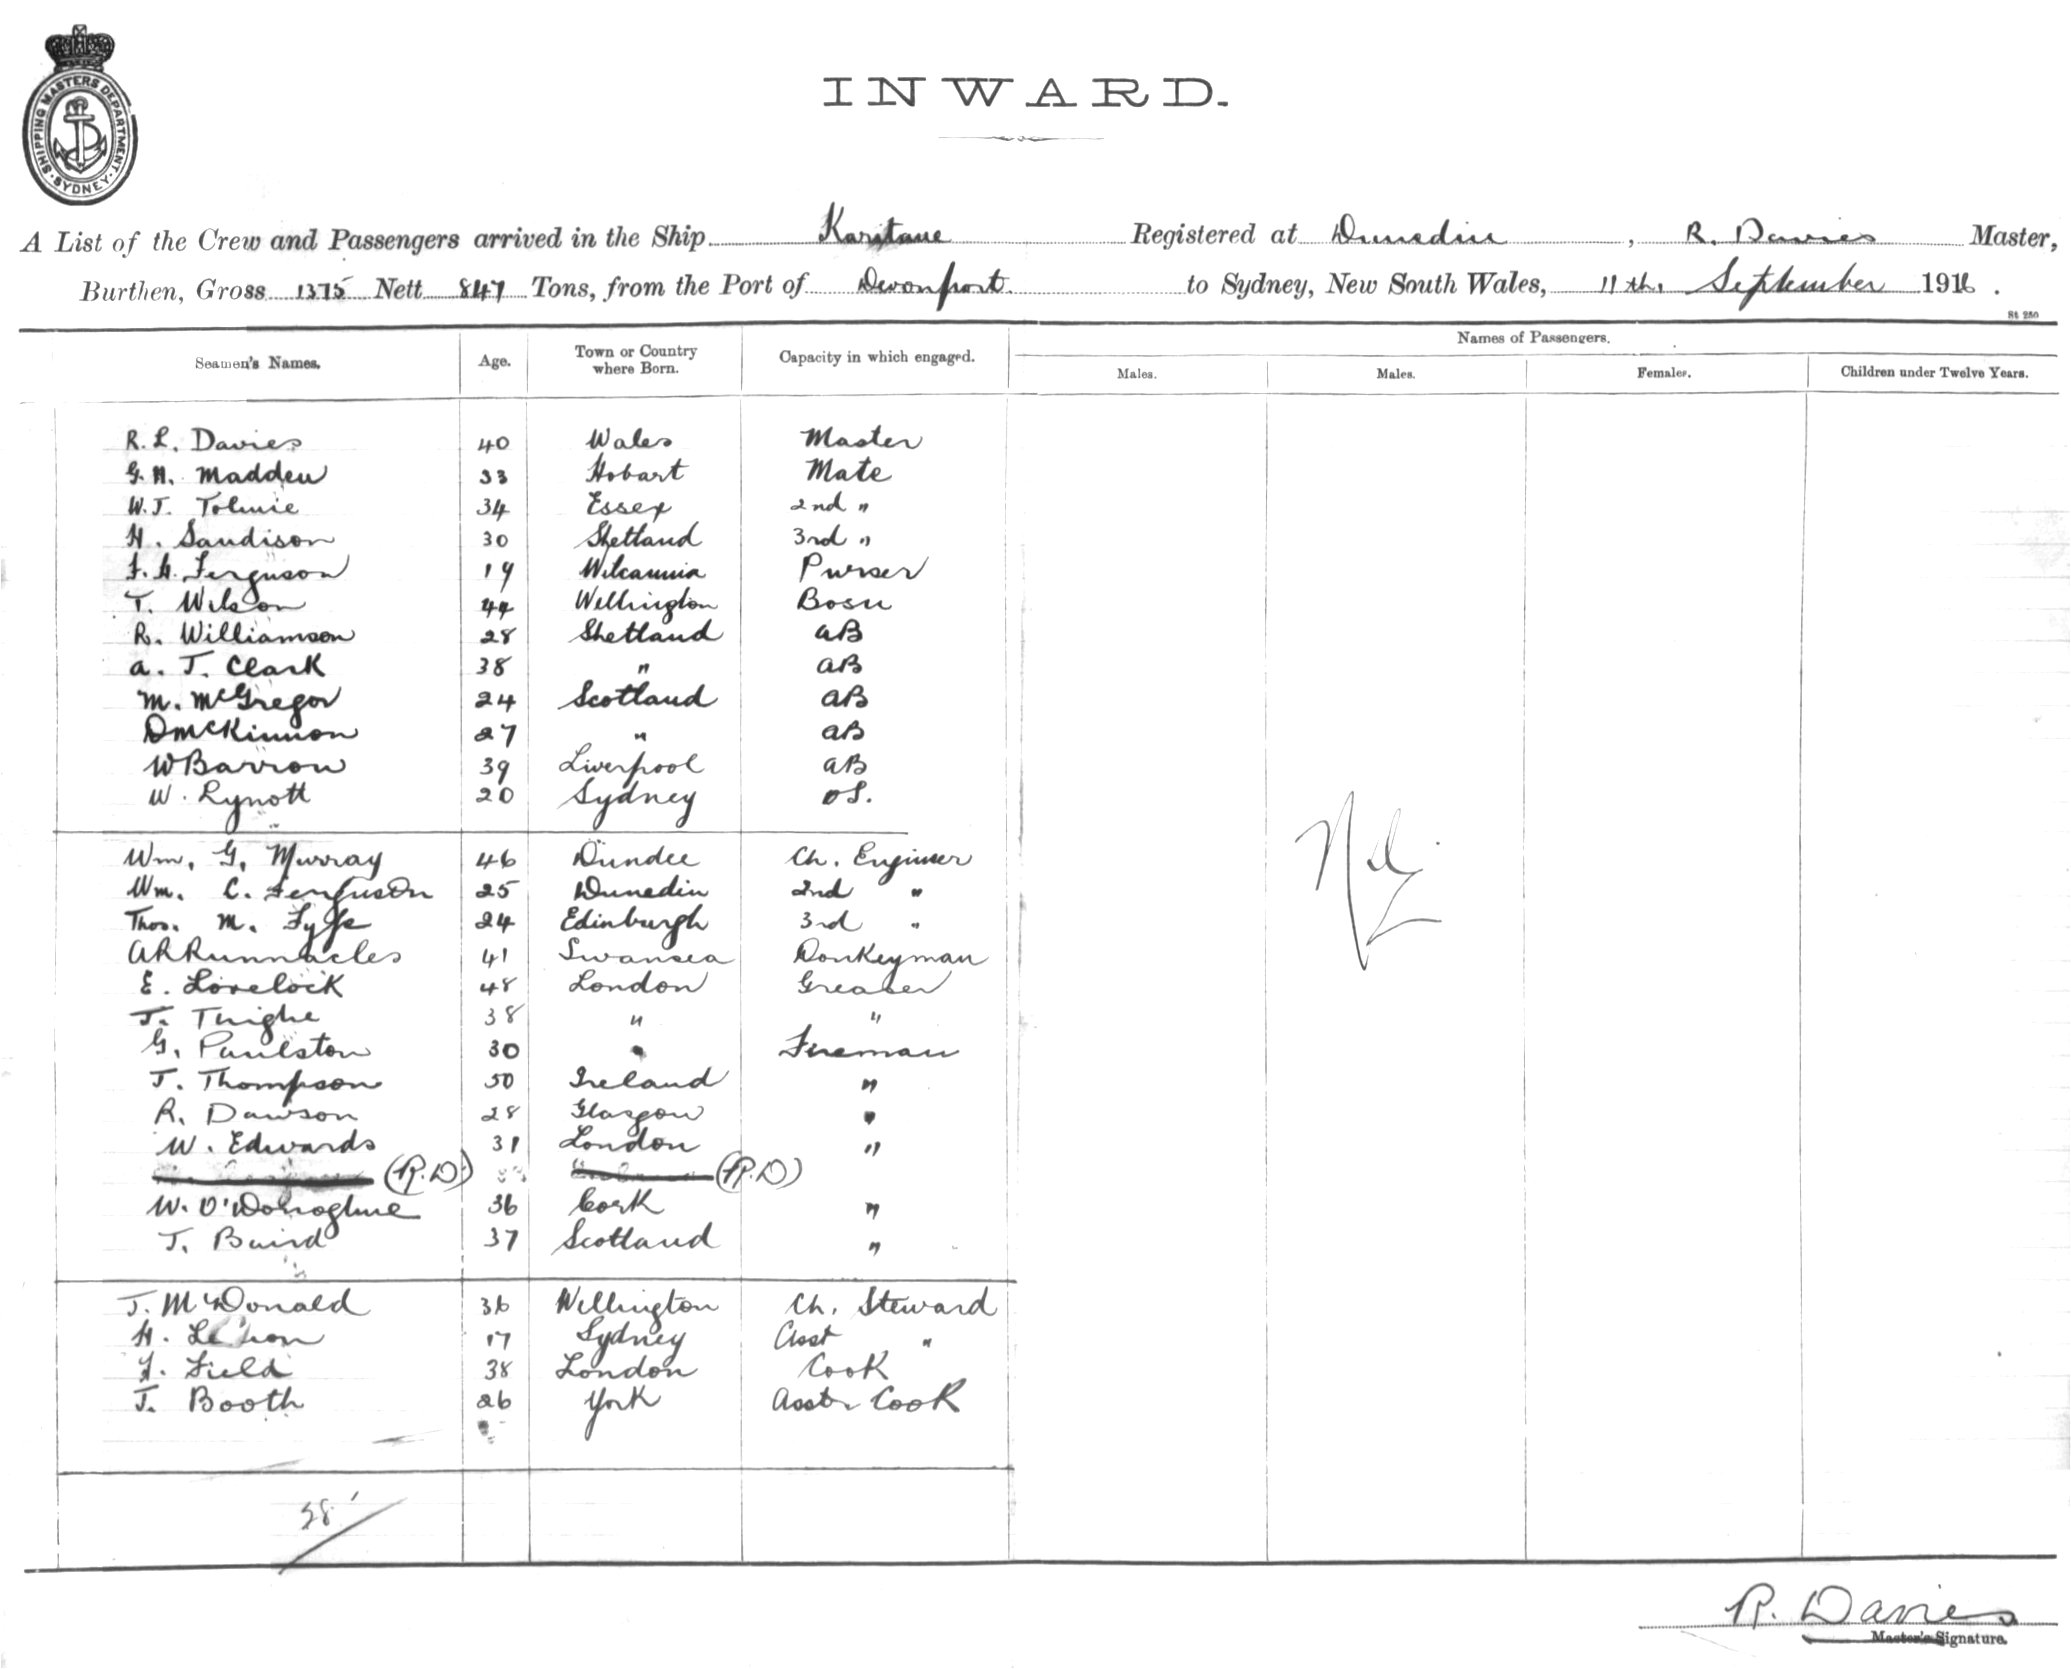 SHIPPING MASTERS DEPARTMENT
SYDNEY
INWARD.
A List of the Crew and Passengers arrived in the Ship Karitane Registered at Dunedin, R. Davies Master,
Burthen, Gross 1375 Nett 847 Tons, from the Port of Devonport to Sydney, New South Wales, 11th September 1916.
St 250
Seamen's Names. Age. Town or Country where Born. Capacity in which engaged. Names of Passengers.
Males. Males. Females. Children under Twelve Years.
R. L. Davies 40 Wales Master
G. H. Madden 33 Hobart Mate
W. J. Tolmie 34 Essex 2nd "
H. Sandison 30 Shetland 3rd "
F. H. Ferguson 19 Wilcannia Purser
T. Wilson 44 Wellington Bosn
R. Williamson 28 Shetland AB
A. T. Clark 38 " AB
M. McGregor 24 Scotland AB
D McKinnon 27 " AB
W Barron 39 Liverpool AB
W. Lynott 20 Sydney OS.
Wm. G. Murray 46 Dundee Ch. Engineer
Wm. C. Ferguson 25 Dunedin 2nd "
Thos. M. Fyfe 24 Edinburgh 3rd "
A R Runnacles 41 Swansea Donkeyman
E. Lovelock 48 London Greaser
J. Tuighe 38 " "
G. Paulston 30 " Fireman
J. Thompson 50 Ireland "
R. Dawson 28 Glasgow "
W. Edwards 31 London "
(R.D) (R.D)
W. O'Donoghue 36 Cork "
J. Baird 37 Scotland "
J. McDonald 36 Wellington Ch. Steward
H. 17 Sydney Asst "
F. Field 38 London Cook
J. Booth 26 York Asst. Cook
Nil
28
R. Davies
Master's Signature.